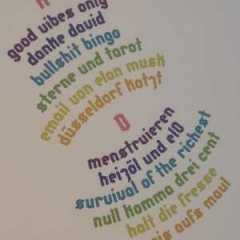 A
good vibes only
danke david
bullshit bingo
sterne und tarot
email von elon musk
düsseldorf kotzt
D
menstruieren
heizöl und e10
survival of the richest
null kommo drei cent
halt die fresse
aufs maul